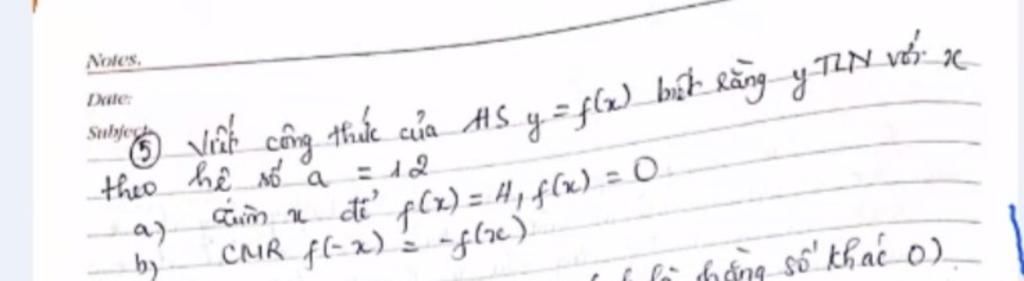 Notes.
Date:
Subject
⑤ Viết công thức của HS y = f(x) biết rằng y TLN với x
theo hệ số a = 12
a) tìm x để f(x) = 4, f(x) = 0
b) CMR f(-x) = -f(x)
hằng số khác 0)